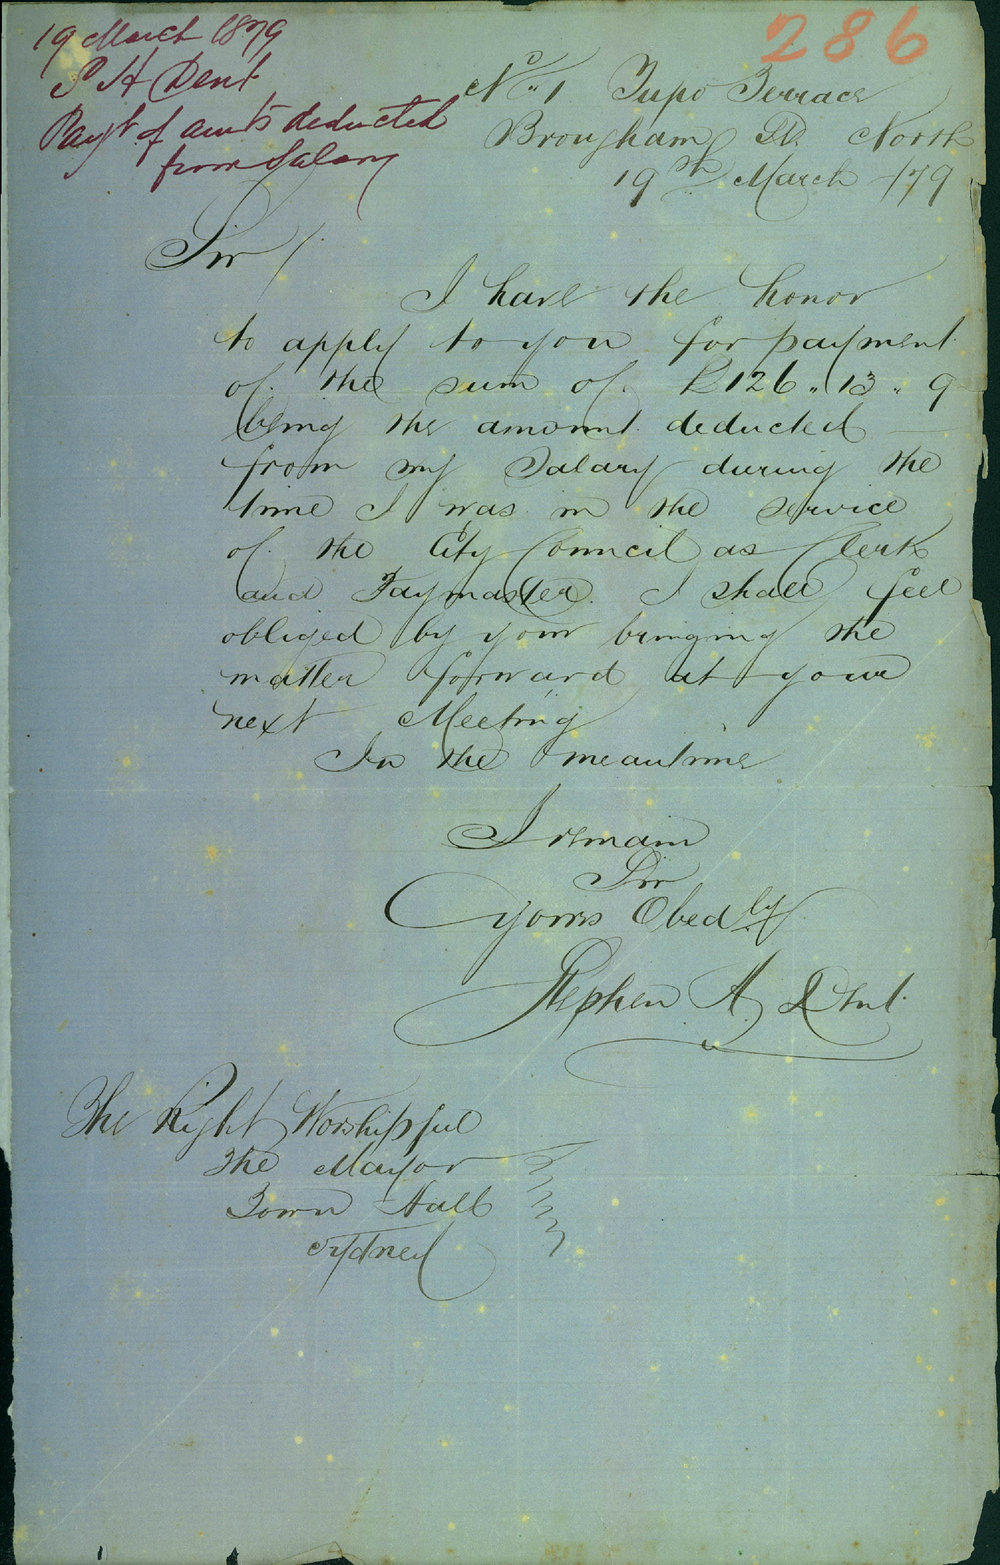 286
19 March 1879
S H Dent
Payt of amts deducted
from Salary
No. 1 Tupo Terrace
Brougham St. North
19th March /79
Sir /
I have the honor
to apply to you for payment
of the sum of £126 " 13 " 9
being the amount deducted
from my Salary during the
time I was in the service
of the City Council as Clerk
and Paymaster. I shall feel
obliged by your bringing the
matter forward at your
next Meeting
In the meantime
I remain
Sir
Yours Obedly
Stephen H. Dent.
The Right Worshipful
The Mayor
Town Hall
Sydney